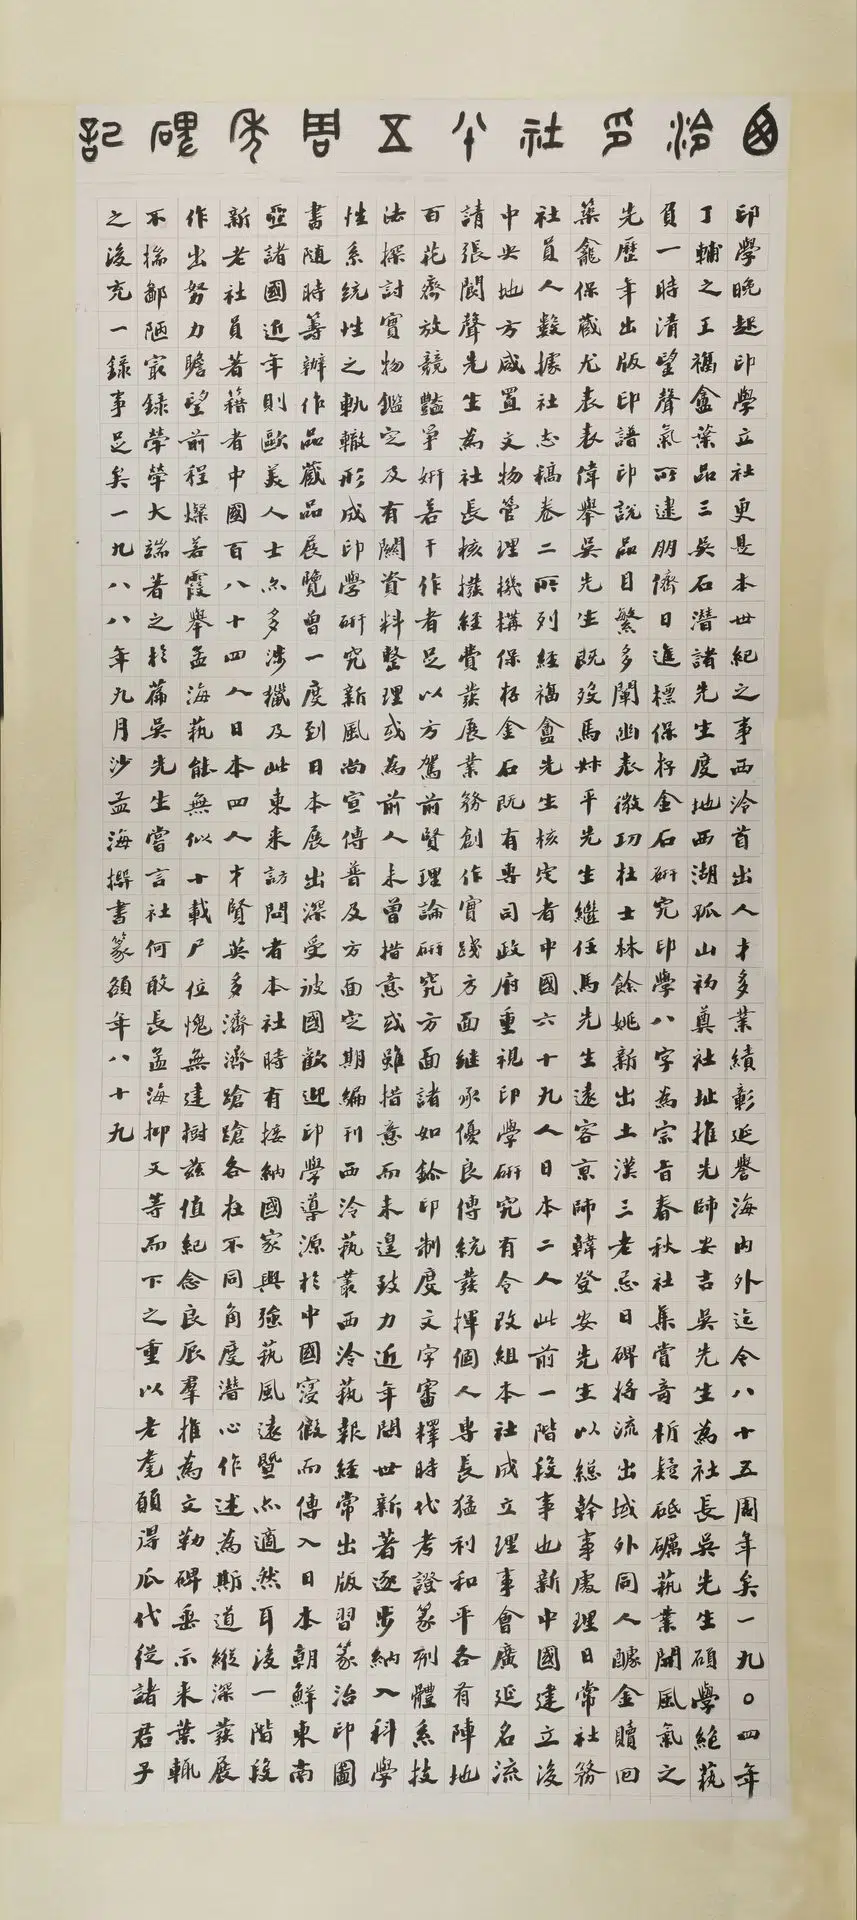 西泠印社八十五周年碑記
印學晚起印學立社更是本世紀之事西泠首出人才多業績彰延譽海內外迄今八十五周年矣一九〇四年
丁輔之王福盦葉品三吳石潛諸先生度地西湖孤山初奠社址推先師安吉吳先生為社長吳先生碩學絕藝
負一時清望聲氣所逮朋儕日進標保存金石研究印學八字為宗旨春秋社集賞奇析疑砥礪藝業開風氣之
先歷年出版印譜印說品目繁多闡幽表微功在士林餘姚新出土漢三老忌日碑將流出域外同人醵金贖回
築龕保藏尤表表偉舉吳先生既歿馬叔平先生繼任馬先生遠客京師韓登安先生以總幹事處理日常社務
社員人數據社志稿卷二所列經福盦先生核定者中國六十九人日本二人此前一階段事也新中國建立後
中央地方咸置文物管理機構保存金石既有專司政府重視印學研究有令改組本社成立理事會廣延名流
請張閬聲先生為社長核撥經費發展業務創作實踐方面继承優良傳統發揮個人專長猛利和平各有陣地
百花齊放競豔爭妍若干作者足以方駕前賢理論研究方面諸如鉨印制度文字審釋時代考證篆刻體系技
法探討實物鑑定及有關資料整理或為前人未曾措意或雖措意而未遑致力近年問世新著逐步納入科學
性系統性之軌轍形成印學研究新風尚宣傳普及方面定期編刊西泠藝叢西泠藝報經常出版習篆治印圖
書隨時籌辦作品藏品展覽曾一度到日本展出深受彼國歡迎印學導源於中國寖假而傳入日本朝鮮東南
亞諸國近年則歐美人士亦多涉獵及此東來訪問者本社時有接納國家興強藝風遠暨亦適然耳後一階段
新老社員著籍者中國百八十四人日本四人才賢英多濟濟蹌蹌各在不同角度潛心作述為斯道縱深發展
作出努力瞻望前程燦若霞舉孟海藝能無似十載尸位愧無建樹茲值紀念良辰羣推為文勒碑垂示来葉輒
不揣鄙陋寂錄犖犖大端著之於篇吳先生嘗言社何敢長孟海抑又等而下之重以老耄願得瓜代從諸君子
之後充一錄事足矣一九八八年九月沙孟海撰書篆額年八十九